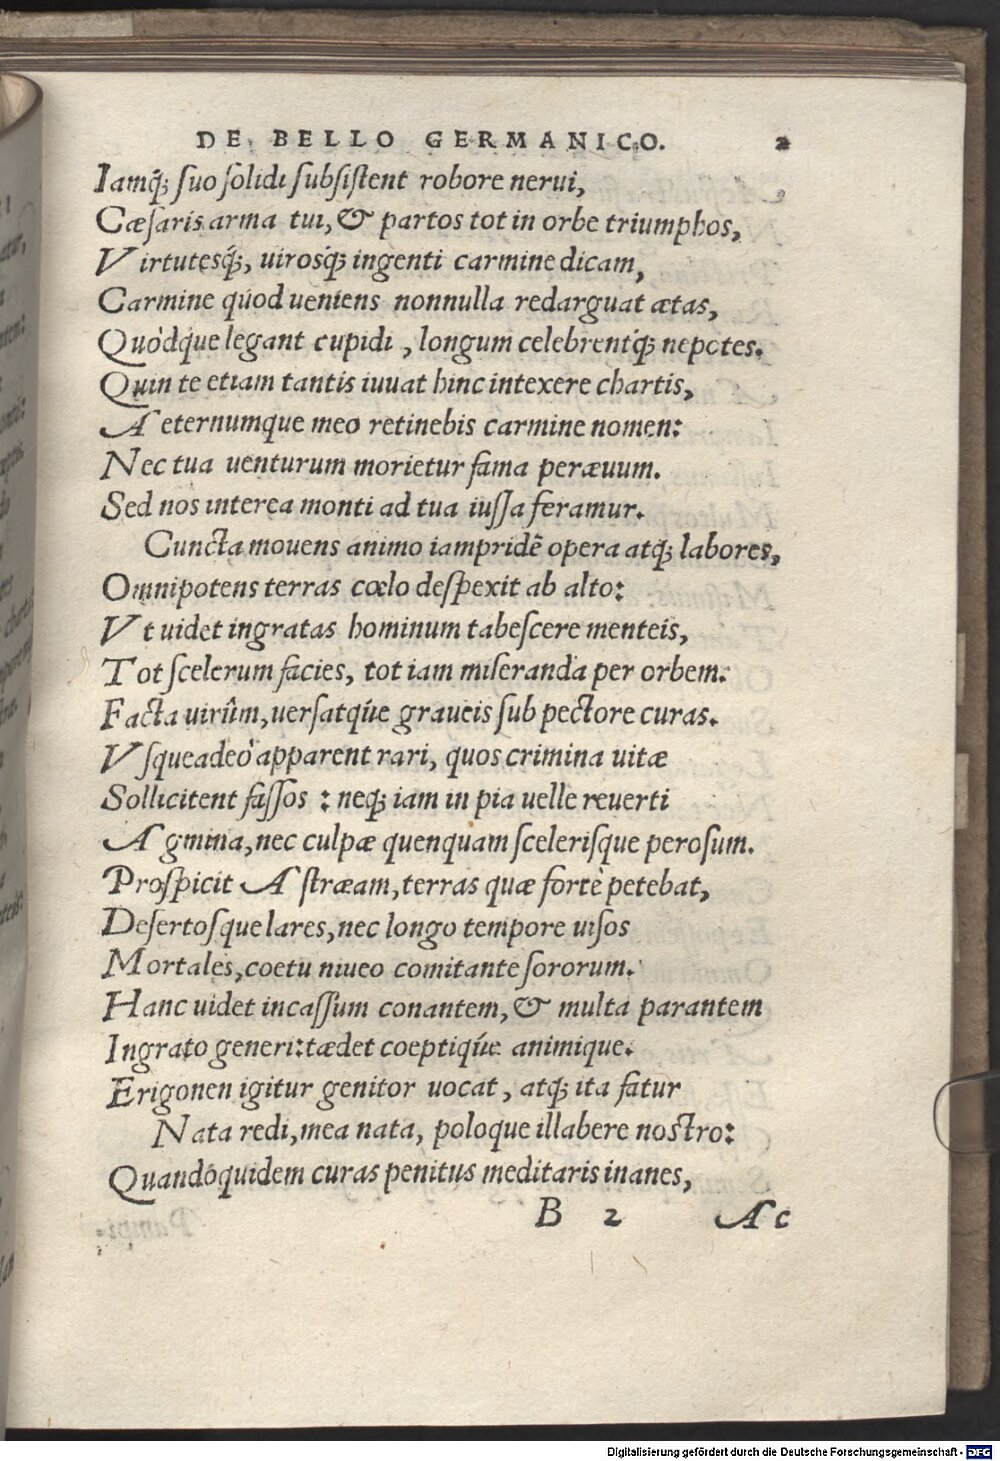 DE BELLO GERMANICO. 2
Iamq́; suo solidi subsistent robore nerui,
Cæsaris arma tui, & partos tot in orbe triumphos,
Virtutesq́;, uirosq́; ingenti carmine dicam,
Carmine quod ueniens nonnulla redarguat ætas,
Quòdque legant cupidi, longum celebrentq́; nepotes.
Quin te etiam tantis iuuat hinc intexere chartis,
Aeternumque meo retinebis carmine nomen:
Nec tua uenturum morietur fama peræuum.
Sed nos interea monti ad tua iussa feramur.
Cuncta mouens animo iampridē opera atq; labores,
Omnipotens terras cœlo despexit ab alto:
Vt uidet ingratas hominum tabescere menteis,
Tot scelerum facies, tot iam miseranda per orbem.
Facta uirûm, uersatq́ue graueis sub pectore curas.
Vsqueadeò apparent rari, quos crimina uitæ
Sollicitent fassos: neq; iam in pia uelle reuerti
Agmina, nec culpæ quenquam scelerisque perosum.
Prospicit Astræam, terras quæ fortè petebat,
Desertosque lares, nec longo tempore uisos
Mortales, coetu niueo comitante sororum.
Hanc uidet incassum conantem, & multa parantem
Ingrato generi: tædet coeptiq́ue animique.
Erigonen igitur genitor uocat, atq; ita fatur
Nata redi, mea nata, poloque illabere nostro:
Quandoquidem curas penitus meditaris inanes,
B 2 Ac
Digitalisierung gefördert durch die Deutsche Forschungsgemeinschaft - DFG